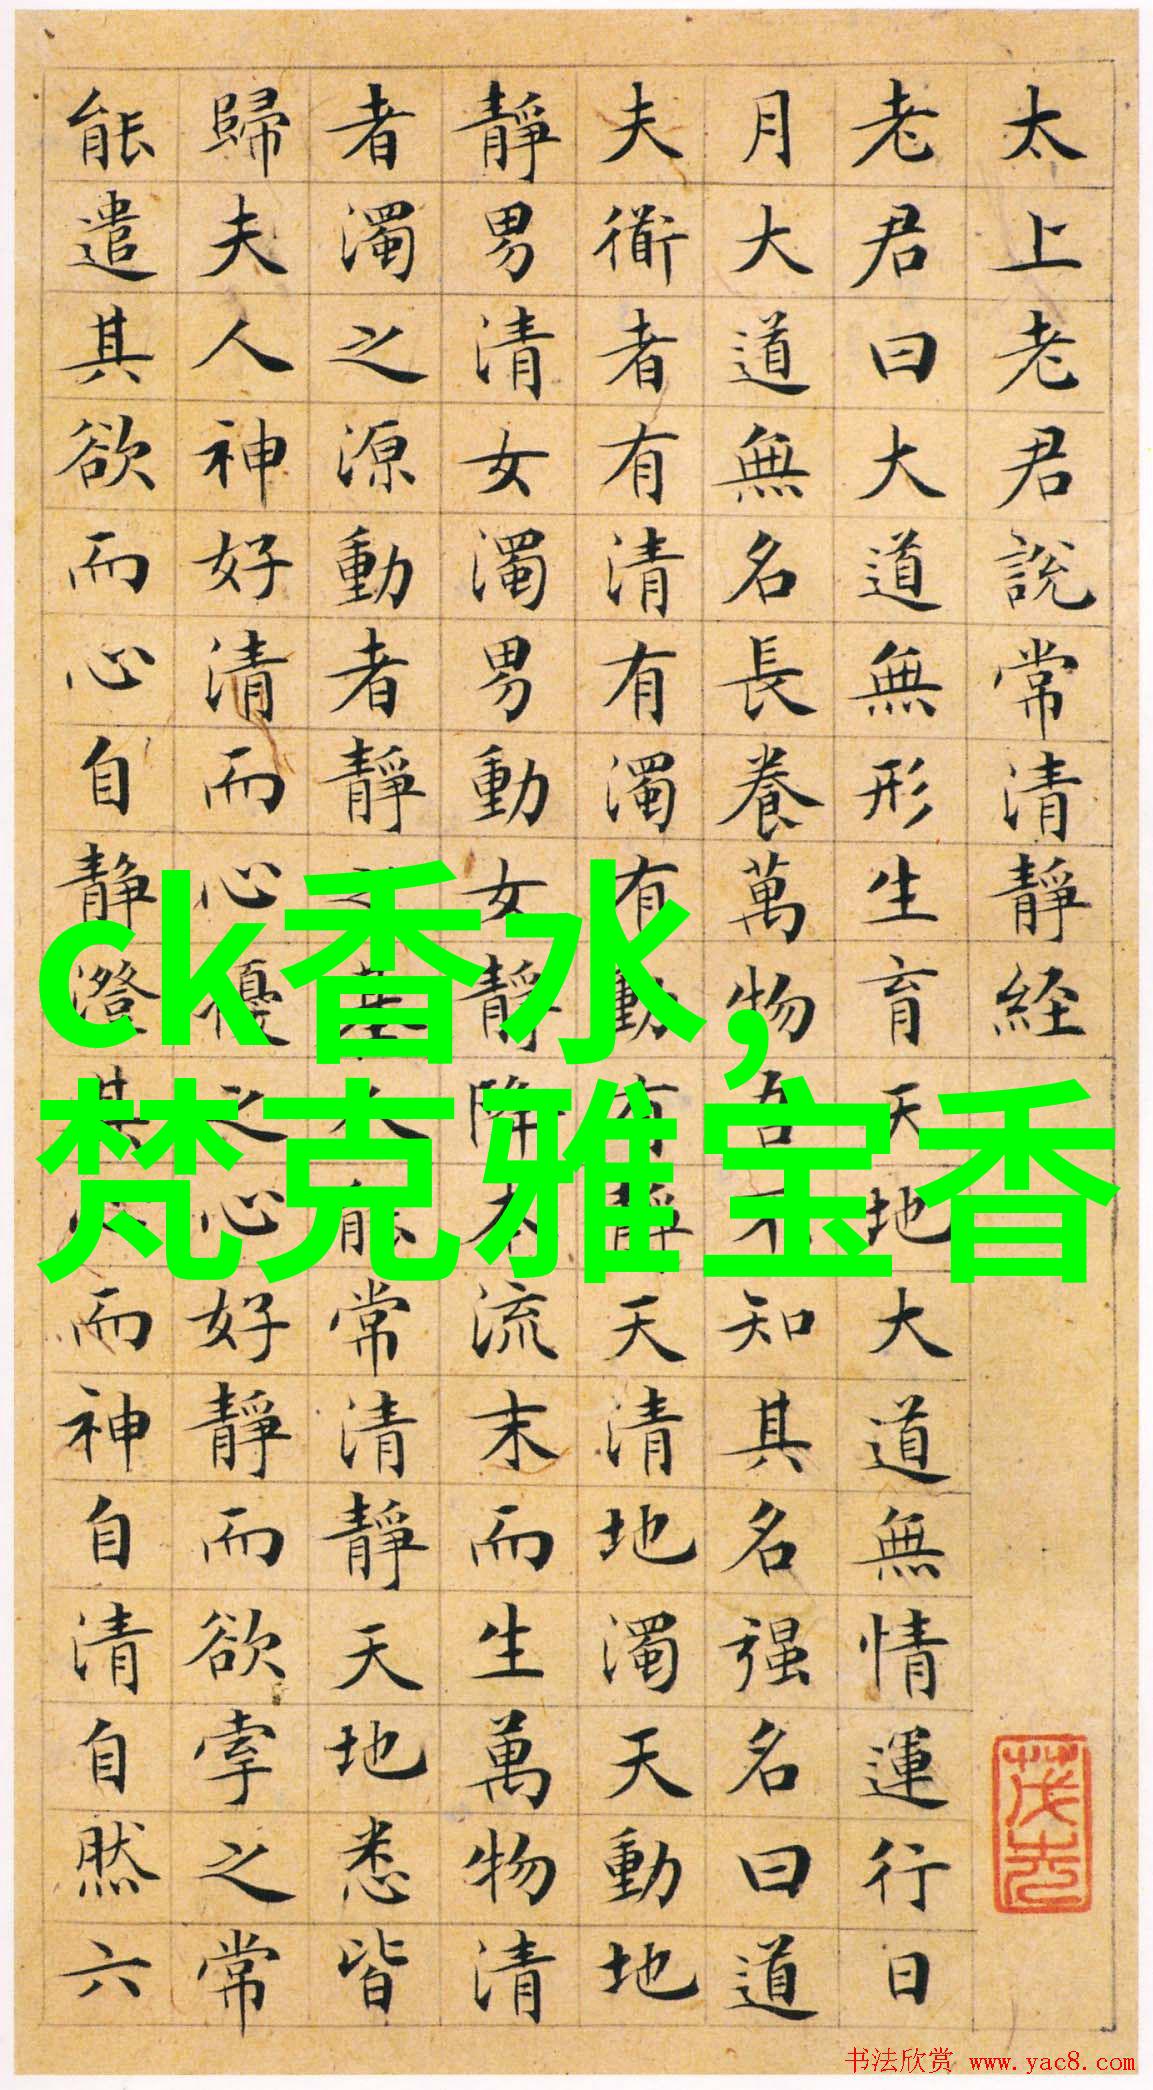 太上老君說常清靜経
老君曰大道無形生育天地大道無情運行日
月大道無名長養萬物吾不知其名强名曰道
夫衜者有清有濁有動有靜天清地濁天動地
靜男清女濁男動女靜降本流末而生萬物清
者濁之源動者靜之基人能常清靜天地悉皆
歸夫人神好清而心擾之心好靜而欲牽之常
能遣其欲而心自靜澄其心而神自清自然六
ck香水,
梵克雅宝香
书法欣赏 www.yac8.com